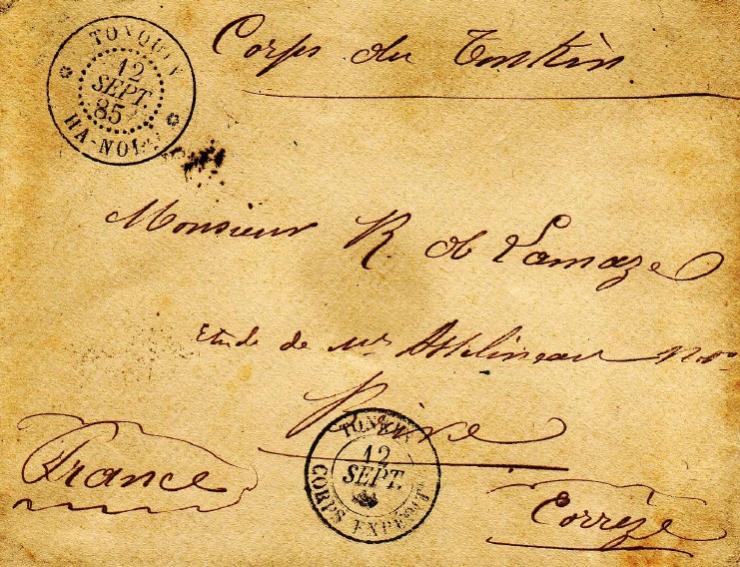 Corps du Tonkin
TONQUIN
12
SEPT.
85
HA-NOI
Monsieur R. de Lamaze
Etude de Me Asselineau
Brive
TONKIN
12
SEPT.
CORPS EXPEDIT
France
Corrèze